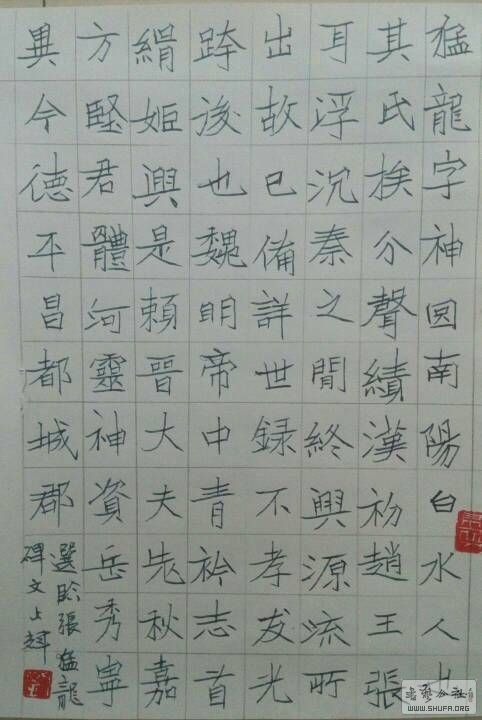 猛龍字神囧南陽白水人也
其氏挨分聲績漢初趙王張
耳浮沉秦之間終興源流所
出故已備詳世録不孝友光
跨後也魏明帝中青衿志首
絹姬興是頼晉大夫秋嘉
方堅君體河靈神資岳秀寧
異今德平昌都城郡
選臨張猛龍
碑文
书艺公社
WWW.SHUFA.ORG